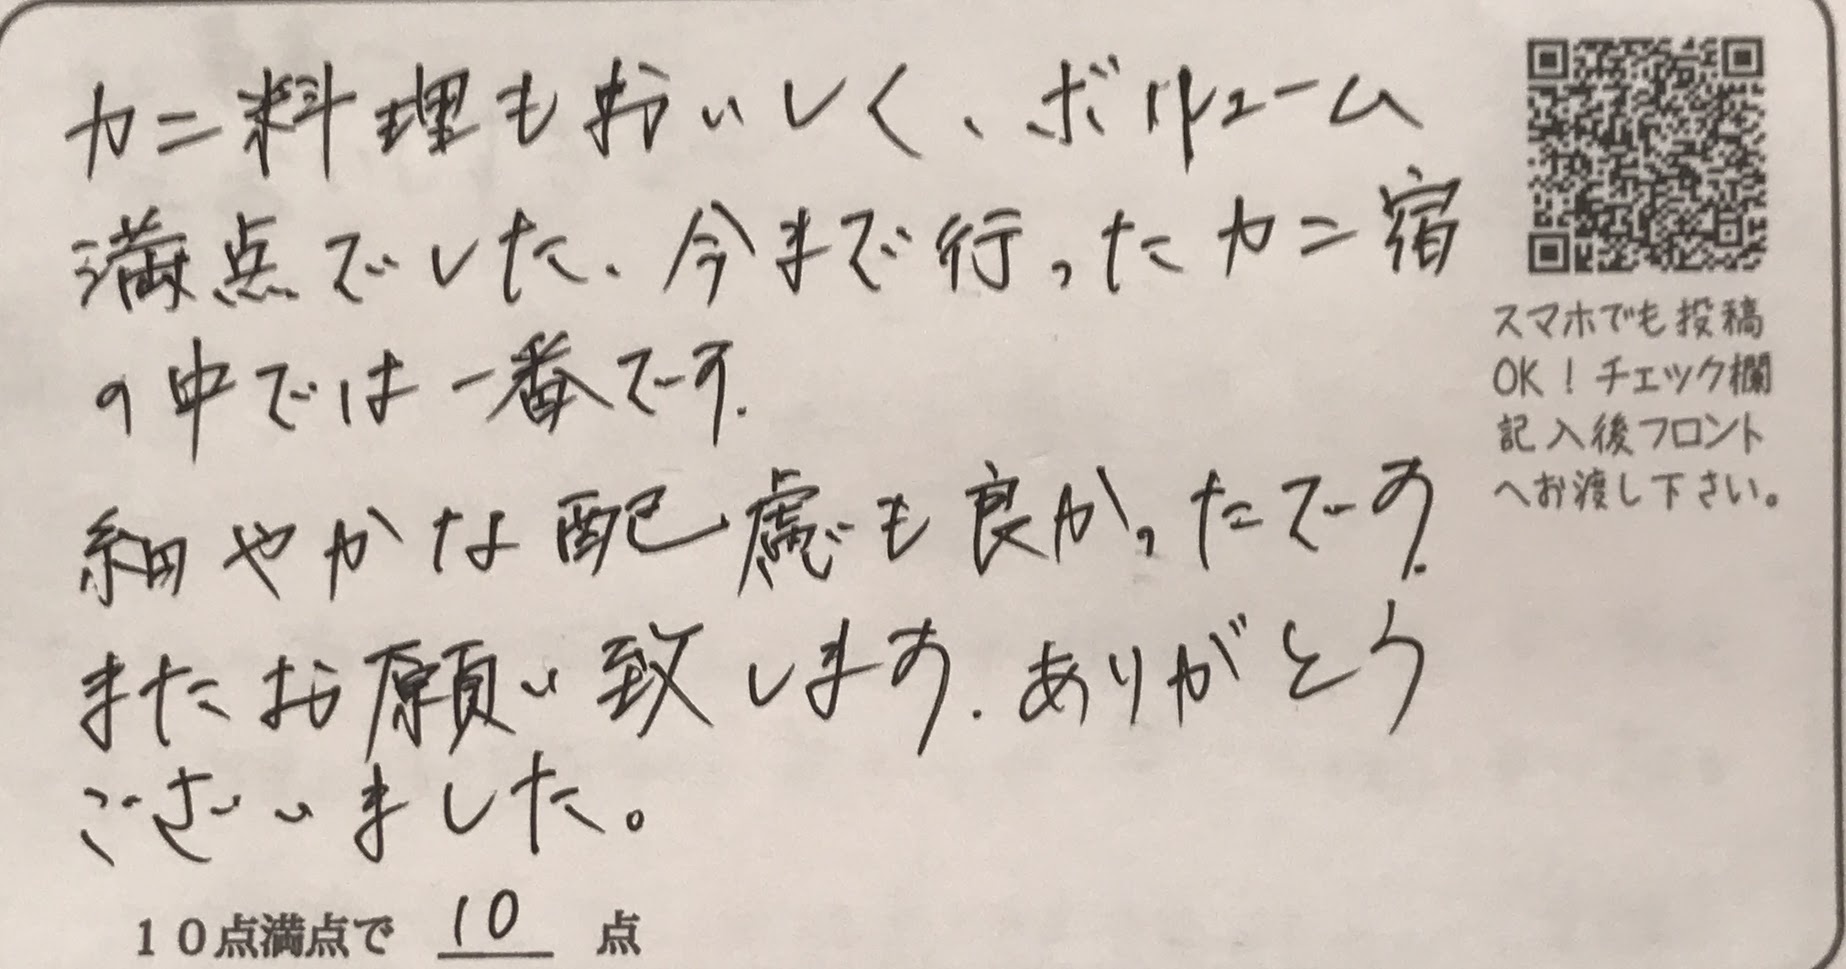 カニ料理もおいしく、ボリューム
満点でした、今まで行ったカニ宿
の中では一番です.
細やかな配慮も良かったです.
またお願い致します.ありがとう
ございました。
10点満点で 10 点
スマホでも投稿
OK!チェック欄
記入後フロント
へお渡し下さい。